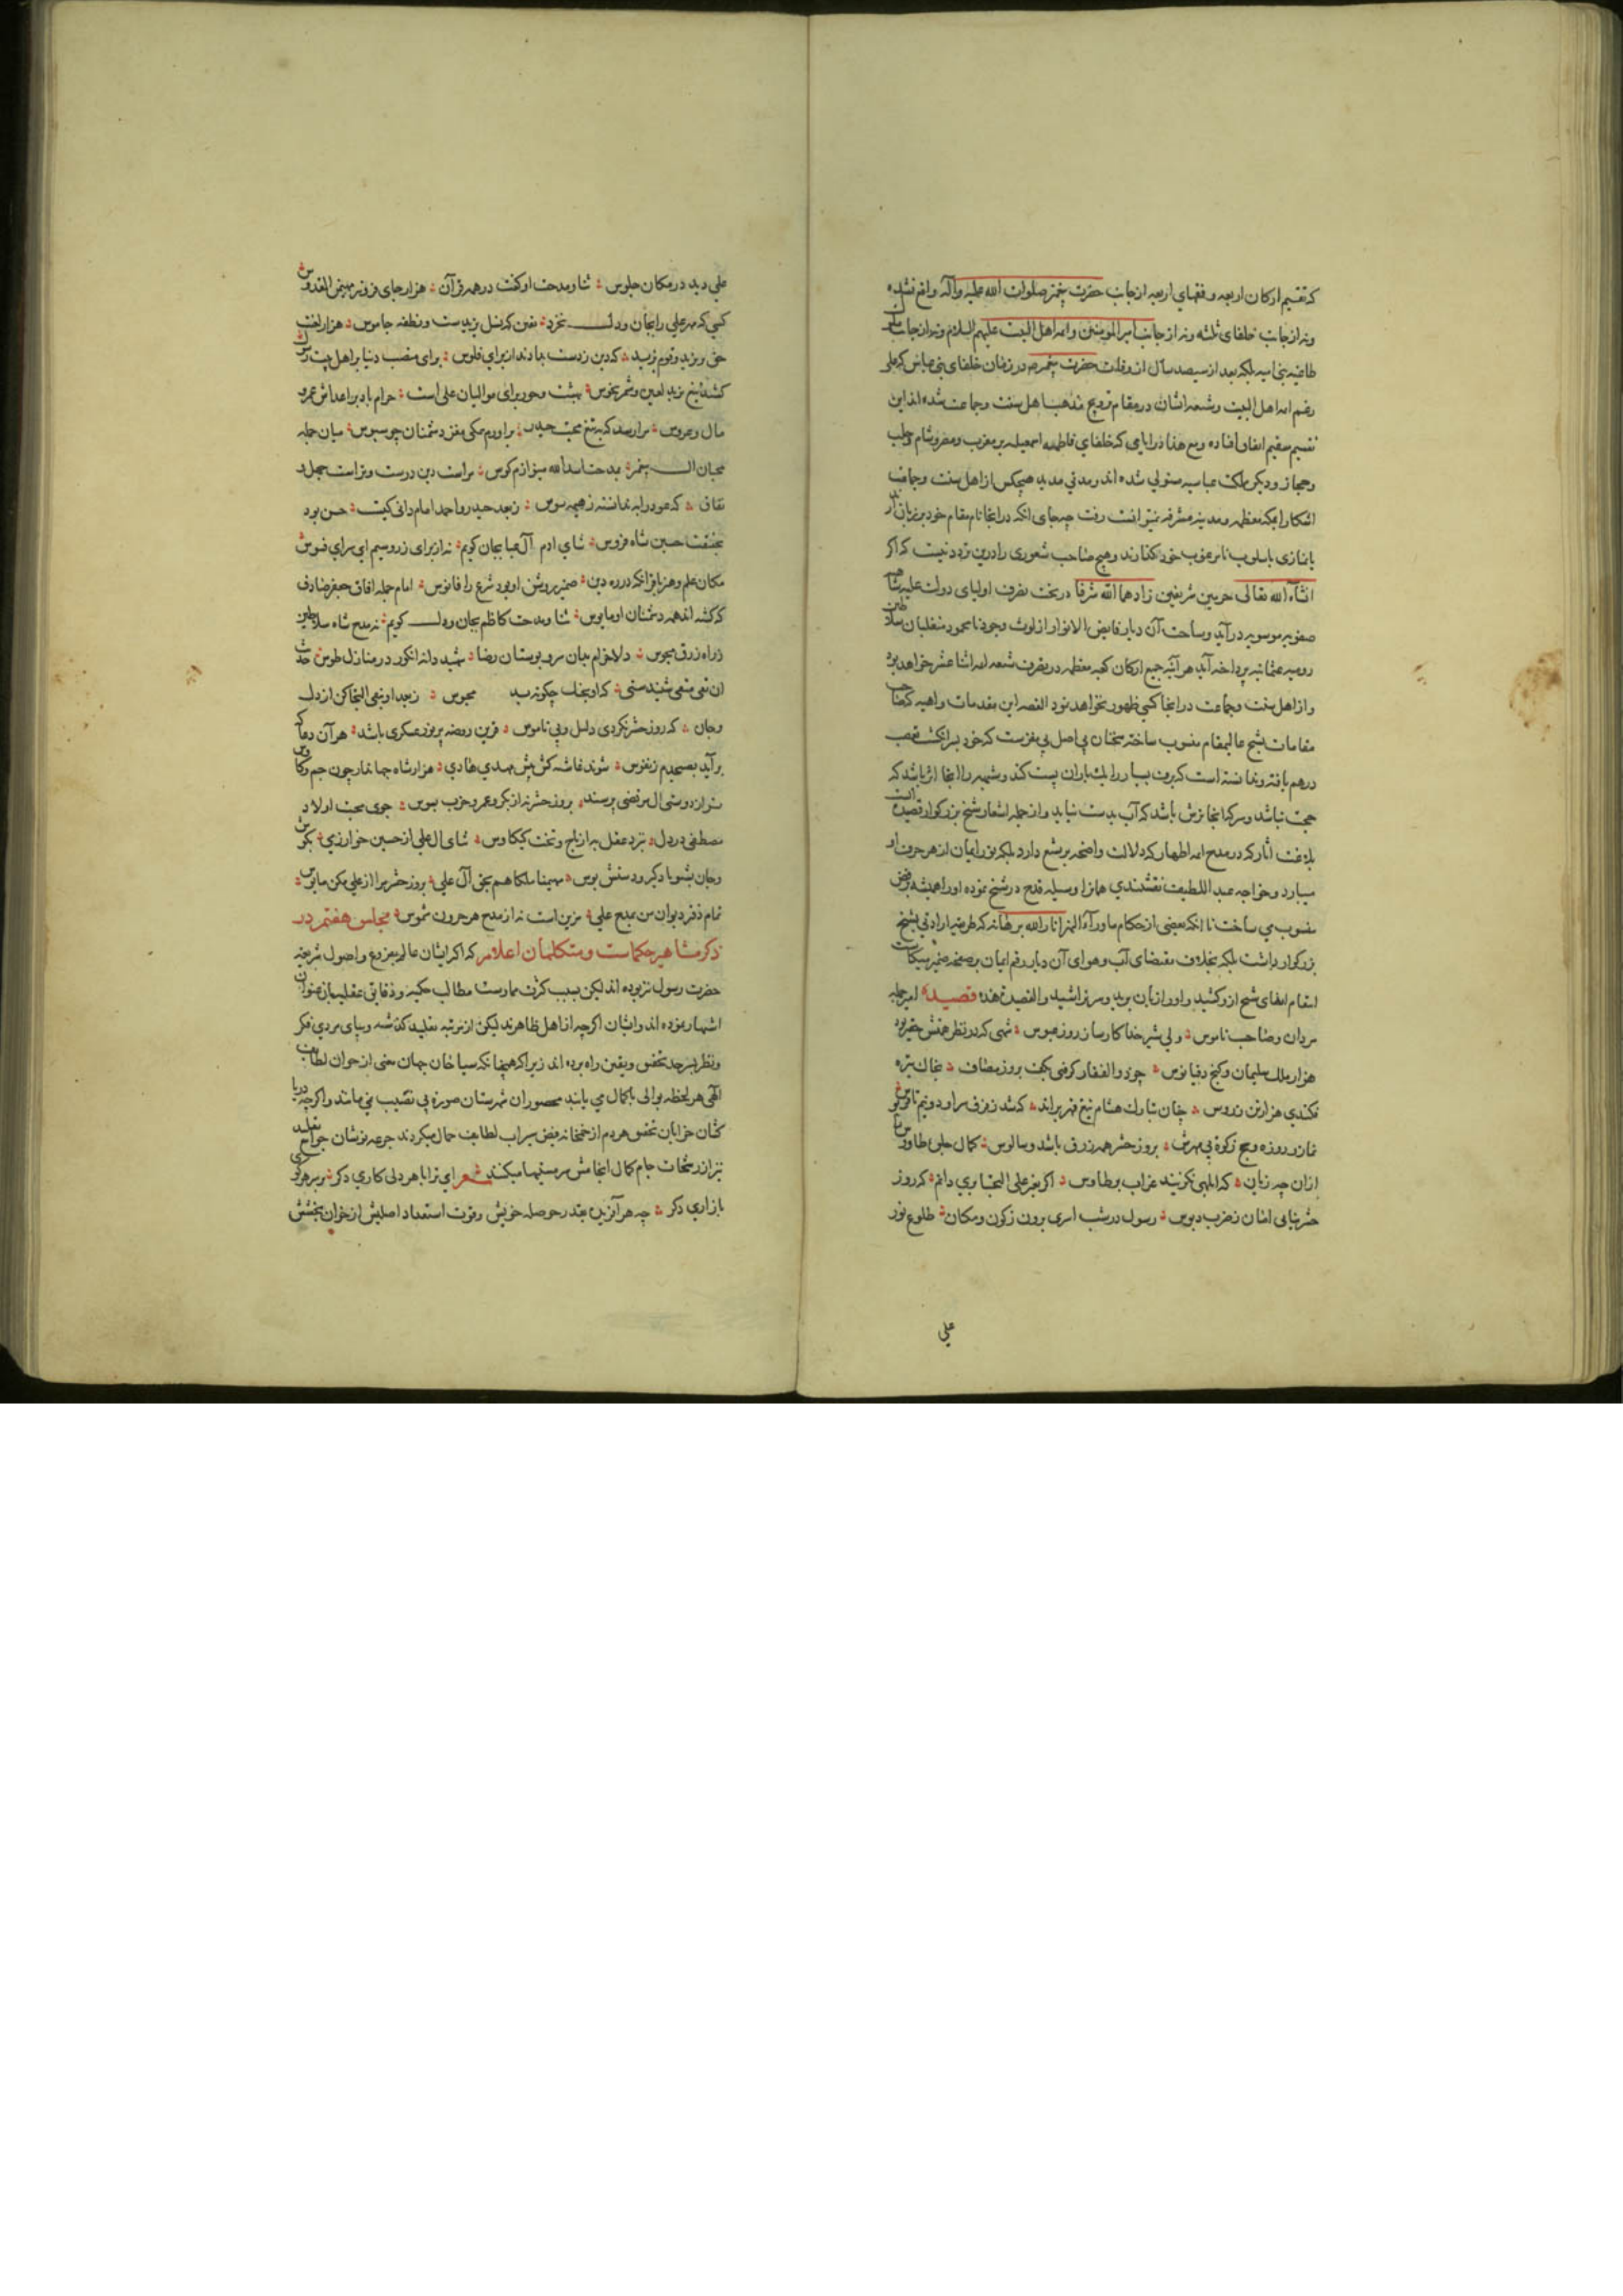 که تقسیم ارکان اربعه و فقهای اربعه از جانب حضرت پیغمبر صلوات الله علیه وآله واقع نشده
ونه از جانب خلفای ثلثه ونه از جانب امیر المومنین وائمه اهل البیت علیهم السلام ونه از جانب
طاغیه بنی امیه بلکه بعد از سیصد سال از وفات حضرت پیغمبر در زمان خلفای بنی عباس که علی
رغم ائمه اهل البیت وشیعه ایشان در مقام ترویج مذهب اهل سنت وجماعت شده اند این
تقسیم سقیم اتفاق افتاده ومع هذا در ایامی که خلفای فاطمیه اسمعیلیه بر مغرب ومصر وشام وحلب
وحجاز ودیگر ملک عباسیه مستولی شده اند ومدتی مدید هیچکس از اهل سنت وجماعت
اشکارا بمکه معظمه ومدینه مشرفه نمیتوانست رفت چه جای انکه در انجا نام مقام خود بر زبان
یا نمازی باسلوب نامرغوب خود بگذارند وهیچ صاحب شعوری را درین تردد نیست که اگر
انشاء الله تعالی حرمین شریفین زادهما الله شرفا در تحت تصرف اولیای دولت علیه
صفویه موسویه در آید وساحت آن دیار فایض الانوار از لوث وجود نامحمود متغلبان
رومیه عثمانیه پرداخته آید هر آینه جمیع ارکان کعبه معظمه در تصرف شیعه ائمه اثنا عشر خواهد بود
واز اهل سنت وجماعت در انجا کسی ظهور نخواهد نمود القصه این مقدمات واهیه که
مقامات شیخ عالیمقام منسوب ساخته سخنان بی اصل بی مغزیست که خود بر انگشت تعصب
درهم بافته وندانسته است که
حجت نباشد وسرکه انجا ترش باشد که آب بدست نیاید واز جمله اشعار شیخ بزرگوار قصیده
بلاغت آثار که در مدح ائمه اطهار که دلالت واضحه بر تشیع دارد بلکه نور ایمان از هر حرف او
میبارد وخواجه عبد اللطیف نقشبندی همانرا وسیله قدح در شیخ نموده اورا همیشه برفض
منسوب می ساخت تا انکه بعضی از حکام ماوراء النهر انار الله برهانه که طریقه ارادتی بشیخ
بزرگوار داشت بلکه بخلاف مقتضای آب وهوای آن دیار رقم ایمان بر صفحه ضمیر
انتقام شیخ ازو کشید واورا زبان برید وسر تراشید والقصیده هذه قصیده امیر جمله
مردان وصاحب ناموس ولی شیر خدا کارساز روز عبوس شهی که در نظر همتش حقیر بود
هزار ملک سلیمان وگنج دقیانوس چو ذو الفقار گرفتی بکف بروز مصاف بخاک تیره
فکندی هزار تن ز روس
نماز وروزه وحج زکوة بی مهرش بروز حشر همه زرق باشد وسالوس کمال جلی طاوس
ازان چه زیان که ابلهی نگزیند غراب بر طاوس اگر بغیر علی التجا بری دانم که روز
حشر نیابی امان ز ضرب دبوس رسول در شب اسری برون ز کون ومکان طلوع نور
علی
علی دید در مکان جلوس ثنا ومدحت او گفت در همه قرآن هزار جای فزونتر مهیمن القدوس
کسی که مهر علی را بجان ودل نخرد یقین که نسل یزیدست ونطفه جاموس هزار لعنت
حق بر یزید وقوم یزید که دین ز دست بدادند از برای فلوس برای منصب دنیا بر اهل بیت رسول
کشید تیغ یزید لعین وشمر نحوس بهشت وحور برای موالیان علی است حرام باد بر اعداش عمر و
مال وعروس مرا رسد که بتیغ محبت حیدر براورم سگی مغز دشمنان چو سبوس میان جمله
محبان ال پیغمبر بمدحت اسد الله میزنم کوس مراست دین درست وتراست جهل و
نفاق که عود را به ندانسته ز هیمه سوس ز بعد حیدر واحمد امام دانی کیست حسن بود
بحقیقت حسین شاه فروس ثنای ادم آل عبا بجان گویم نه از برای زر وسیم ای برای فسوس
مکان علم وهنر باقر انکه در ره دین ضمیر روشن او بود شرع را فانوس امام جمله افاق جعفر صادق
که گشته اند همه دشمنان او مایوس ثنا ومدحت کاظم بجان ودل گویم نه مدح شاه سلاطین
ز راه زرق مجوس دلا خرام میان سرو بوستان رضا شهید دانه انگور در منازل طوس حدیث
ان تقی متقی شنید ستی که او بخلق چگونه رسید مجوس ز بعد او بنقی التجا کن از دل
وجان که روز حشر نگردی ذلیل وبی ناموس قرین روضه پر نور عسکری باشد هر آن دعا که
بر آید بصبحدم ز نفوس شوند غاشیه کش پیش مهدی هادی هزار شاه جهاندار چون جم وکاوس
مرا ز دوستی ال مرتضی پرسند بروز حشر نه از بکر وعمر وحزب بسوس جوی محبت اولاد
مصطفی در دل بنزد عقل به از تاج وتخت کیکاوس ثنای ال علی از حسین خوارزمی بگوش
وجان بشنو یاد گیر ودستش بوس مهیمنا ملکا هم بحق آل علی بروز حشر مرا از علی مکن مایوس
تمام دفتر دیوان من بمدح علی مزین است نه از مدح هر حرون شموس مجلس هفتم در
ذکر مشاهیر حکماست ومتکلمان اعلام که اگر ایشان عالم بفروع واصول شریعه
حضرت رسول نیز بوده اند لیکن بسبب کثرت ممارست مطالب حکمیه ودقایق عقلیه باز بعنوان
اشتهار نموده اند وایشان اگرچه از اهل ظاهرند لیکن از مرتبه تقلید گذشته وبپای مردی فکر
ونظر بسرحد تحقیق ویقین راه برده اند زیرا که همچنانکه سیاحان جهان معنی از خوان لطایف
الهی هر لحظه نوالی باکمال می یابند محصوران شهرستان صورة بی نصیب نمی مانند واگرچه دریا
کشان خرابات تحقیق هر دم از خمخانه فیض سیراب لطایف حال میگردند جرعه نوشان جرائح
نیز از رشحات جام کمال انجا مش سرمستیها میکنند شعر ای ترا با هر دلی کاری دگر بر سر هر
بازاری دگر چه هر آفرین بقدر حوصله خویش وقوت استعداد اصلیش از خوان بخشش